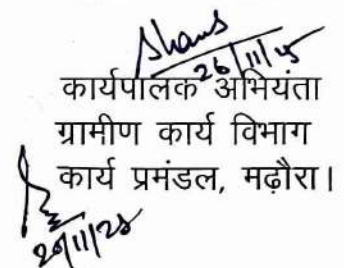 26/11/25
कार्यपालक अभियंता
ग्रामीण कार्य विभाग
कार्य प्रमंडल, मढ़ौरा।
26/11/25